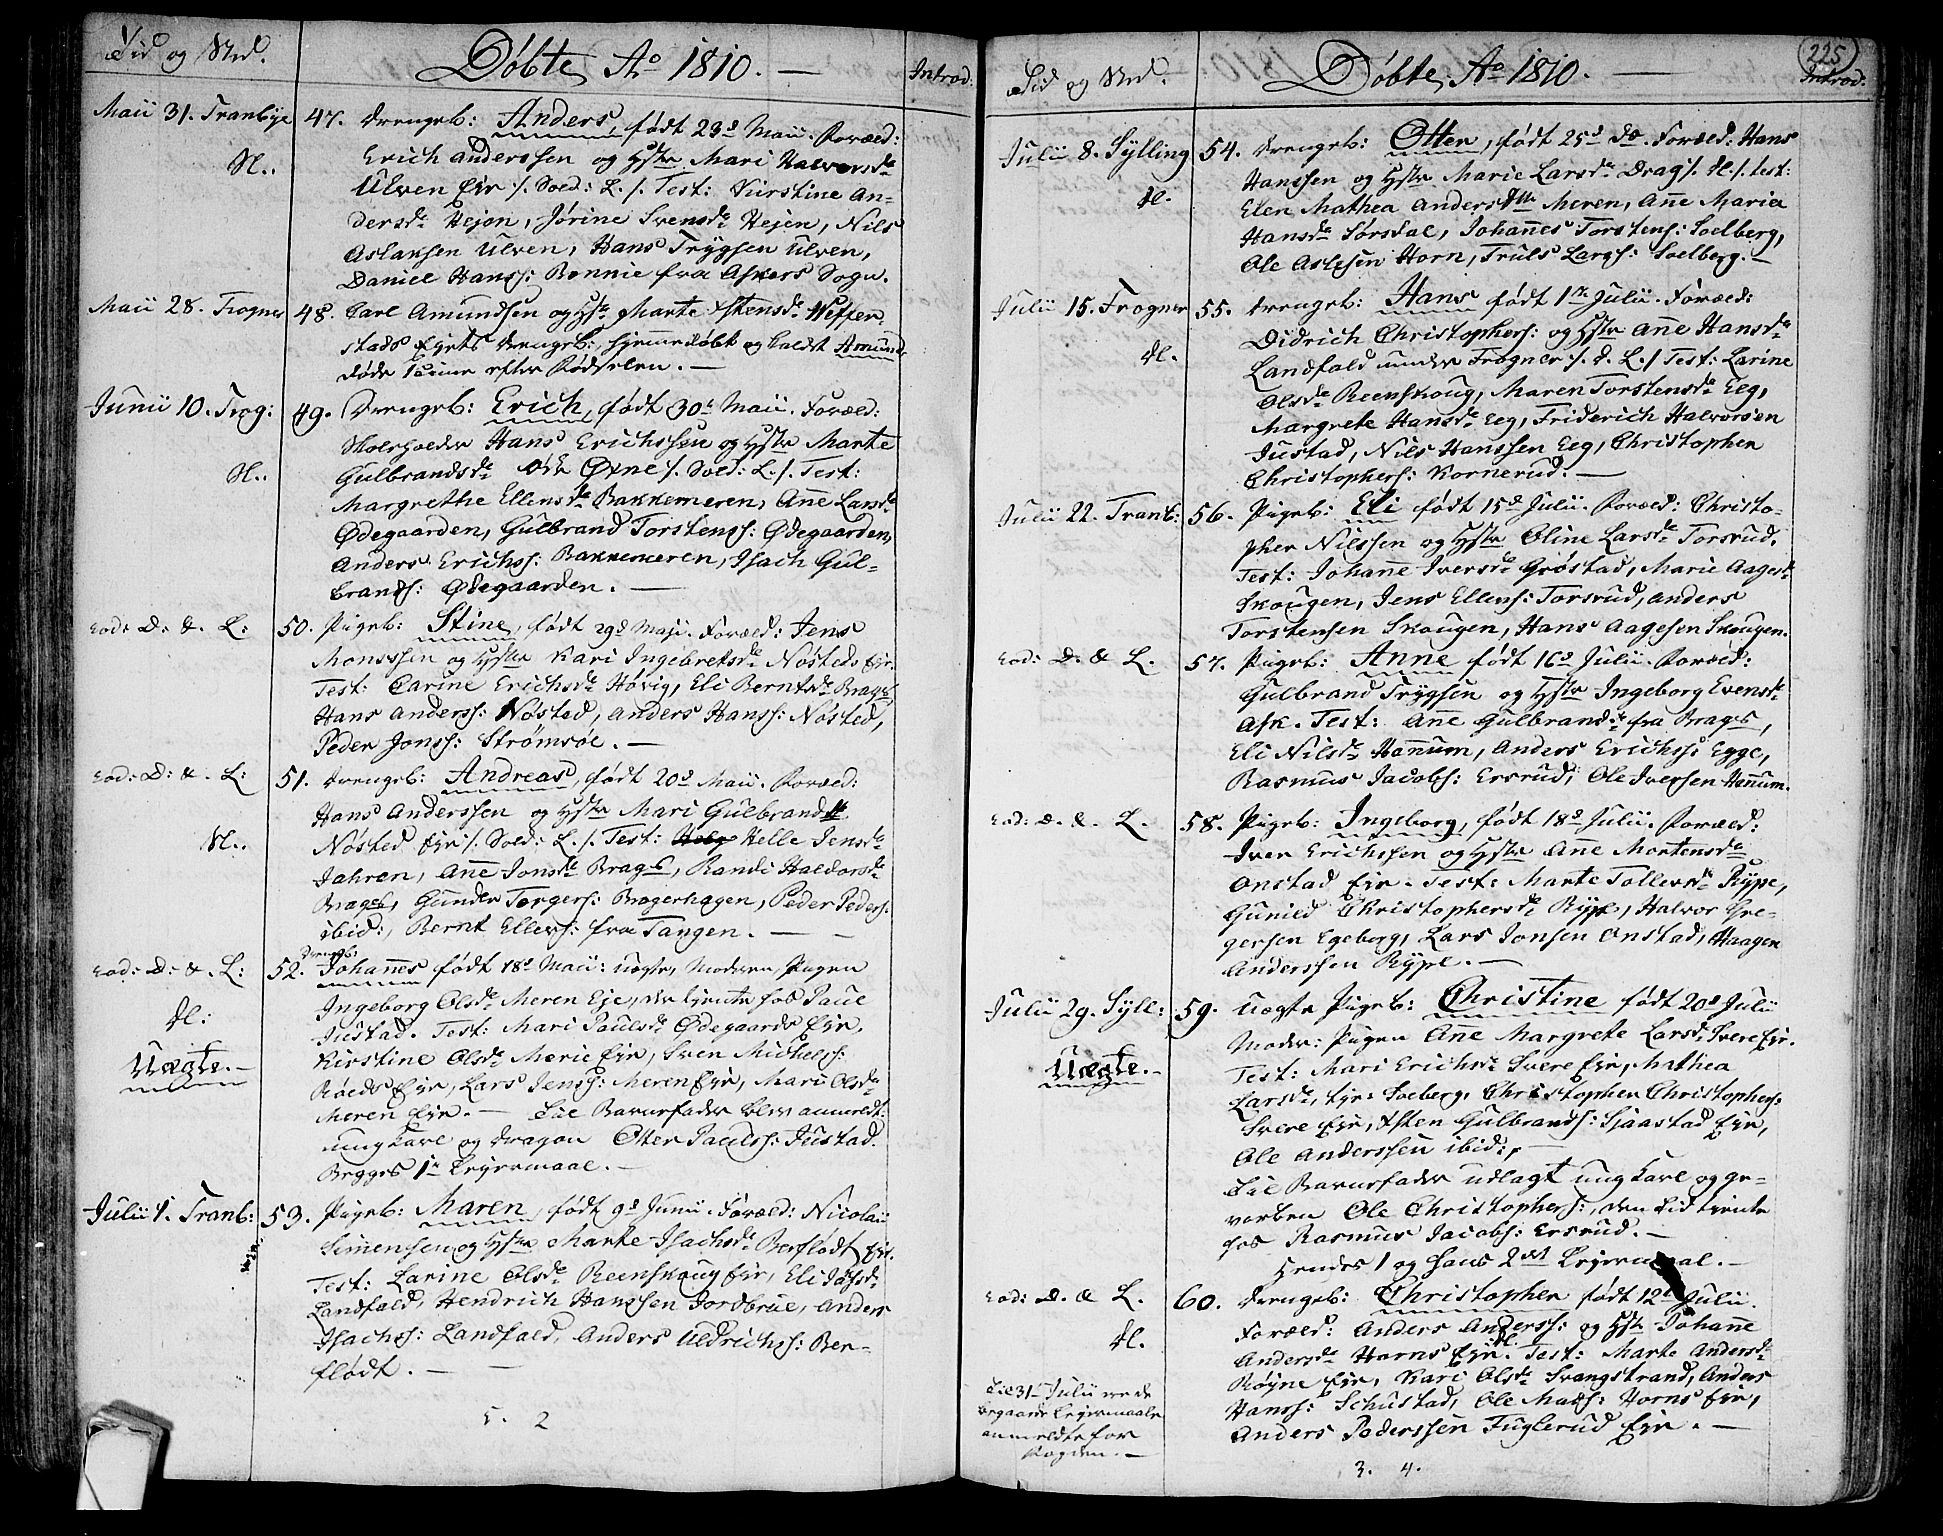 Tid og Sted.
Døbte Aº 1810. —
Introd:
Maii 31. Tranbye 47. Drengeb: Anders, født 23d Maii. Foræld:
N.. Erich Anderssen og Hstr Mari Halvorsdr
Ulven Eje /. Soed: L. /. Test: Kirstine An-
dersdr Hejen, Jørine Svensdr Hejen, Nils
Aslaksen Ulven, Hans Trygsen Ulven,
Daniel Hanss: Bonnie fra Askers Sogn.
Maii 28. Frogner 48. Carl Amundsen og Hstr Marte Astensdr
stads Ejets Drengeb: hjemmedøbt og kaldt Amund
døde 1 time efter Fødselen. —
Junii 10. Frog: 49. Drengeb: Erich, født 30d Maii. Foræld:
Skoleholder Hans Erichssen og Hstr Marte
N.. Gulbrandsdr Øxne /. Soed: L. /. Test:
Margrethe Ellensdr Bakkemeren, Anne Larsdr
Ødegaarden, Gulbrand Torstenss: Ødegaarden,
Anders Erichss: Bakkemeren, Isach Gul-
brands: Ødegaarden. —
eod: D: & L: 50. Pigeb: Stine, født 29d Maji. Foræld: Jens
Monssen og Hstr Kari Ingebretsdr Nøsted Eje.
Test: Carine Erichsdr Høvig, Eli Berntsdr Bragr
Hans Anderss: Nøsted, Anders Hanss: Nøsted,
Peder Jonss: Strømsøe. —
eod: D: & L: 51. Drengeb: Andreas, født 20d Maii. Foræld:
Hans Anderssen og Hstr Mari Gulbrandsdr
N.. Nøsted Eje /. Soed: L. /. Test: Helle Jensdr
Jahren, Anne Jonsdr Brags, Randi Haldorsdr
Brages, Gunder Torgers: Bragerhagen, Peder Peders:
ibid:, Bernt Ellevs: fra Tangen. — —
eod: D: & L: 52. Drengeb: Johannes født 18d Maii: uægte, Moderen Pigen
Ingeborg Olsdr Meren Eje, der tjente hos Poul
N: Justad. Test: Mari Paulsdr Ødegaards Eje,
Uægte. — Kirstine Olsdr Merie Eje, Sven Michelss:
Røeds Eje, Lars Jenss: Meren Eje, Mari Olsdr
Meren Eje. — Til Barnefader blev anmeldt:
ungkarl og Dragon Otter Paulss: Justad.
Begges 1te Lejermaal. —
Julii 1. Tranb: 53. Pigeb: Maren, født 9d Junii. Foræld: Nicolai
Simensen og Hstr Marte Isachsdr Berflødt Eje.
Test: Larine Olsdr Reenskoug Eje, Eli
Landfald, Hendrich Hanssen Jordbrue, Anders
Isachss: Landfald, Anders Uldrichss: Ber-
flødt. — —
5. 2
225
Tid og Sted.
Døbte Aº 1810. —
Introd:
Julii 8. Sylling 54. Drengeb: Otter, født 25d do. Foræld: Hans
Hanssen og Hstr Marie Larsdr Drag /. N. /. Test:
N. Elen Mathea Andersdtr Meren, Anne Maria
Hansdr Sørsdal, Johannes Torstens: Soelberg,
Ole Aslesen Horn, Truls Larss: Soelberg. —
Julii 15. Frogner 55. Drengeb: Hans født 1te Julii. Foræld:
Didrich Christophers: og Hstr Anne Hansdr
N. Landfald under Frogner /. d. L. / Test: Larine
Olsdr Reenskoug, Maren Torstensdr Eeg,
Margrete Hansdr Eeg, Friderich Halvorsen
Justad, Nils Hanssen Eeg, Christopher
Christophers: Kornerud. —
Julii 22. Tranb: 56. Pigeb: Eli født 15d Julii. Foræld: Christo-
pher Nilssen og Hstr Oline Larsdr Torsrud.
Test: Johanne Iversdr Grøstad, Marie Aagesdr
Skougen, Jens Ellevs: Torsrud, Anders
Torstensen Skougen, Hans Aagesen Skougen.
eod: D: & L. 57. Pigeb: Anne født 16d Julii. Foræld:
Gulbrand Trygsen og Hstr Ingeborg Evensdr
Ask. Test: Anne Gulbrandsdr fra Brages,
Eli Nilsdr Hannum, Anders Erichss: Egge,
Rasmus Jacobs: Ersrud, Ole Iversen Hannum.
eod: D. & L. 58. Pigeb: Ingeborg, født 18d Julii. Foræld:
Iver Erichssen og Hstr Ane Mortensdr
Onstad Eje. Test: Marte Tollevsdr Rype,
Gunild Christophersdr Rype, Halvor Gre-
gersen Egeberg, Lars Jonsen Onstad, Haagen
Anderssen Rype. —
Julii 29. Syll: 59. Uægte Pigeb: Christine født 20d Julii
Moder: Pigen Anne Margrete Larsdr Svere Eje.
Uægte. — Test: Mari Erichsdr Svere Eje, Mathea
Larsdr, Eje: Soeberg, Christopher Christophers:
Svere Eje, Asten Gulbrands: Sjaastad Eje,
Ole Anderssen ibid:, —
Til Barnefader udlagt ungkarl og ge-
vorben Ole Christophers:, den Tid tjente
hos Rasmus Jacobs: Ersrud. —
Hendes 1 og hans 2det Lejermaal. —
eod: D. & L. 60. Drengeb: Christopher født 12d Julii.
Foræld: Anders Anderss: og Hstr Johanne
N. Andersdr Horns Eje. N. Test: Marte Andersdr
Røyne Eje, Kari Olsdr Svangstrand, Anders
Hanss: Schustad, Ole Mads: Horns Eje,
Anders Pederssen Fuglerud Eje. —
Til 31te Julii
begaaede Lejermaale
anmeldte for
Fogden. —
3. 4.